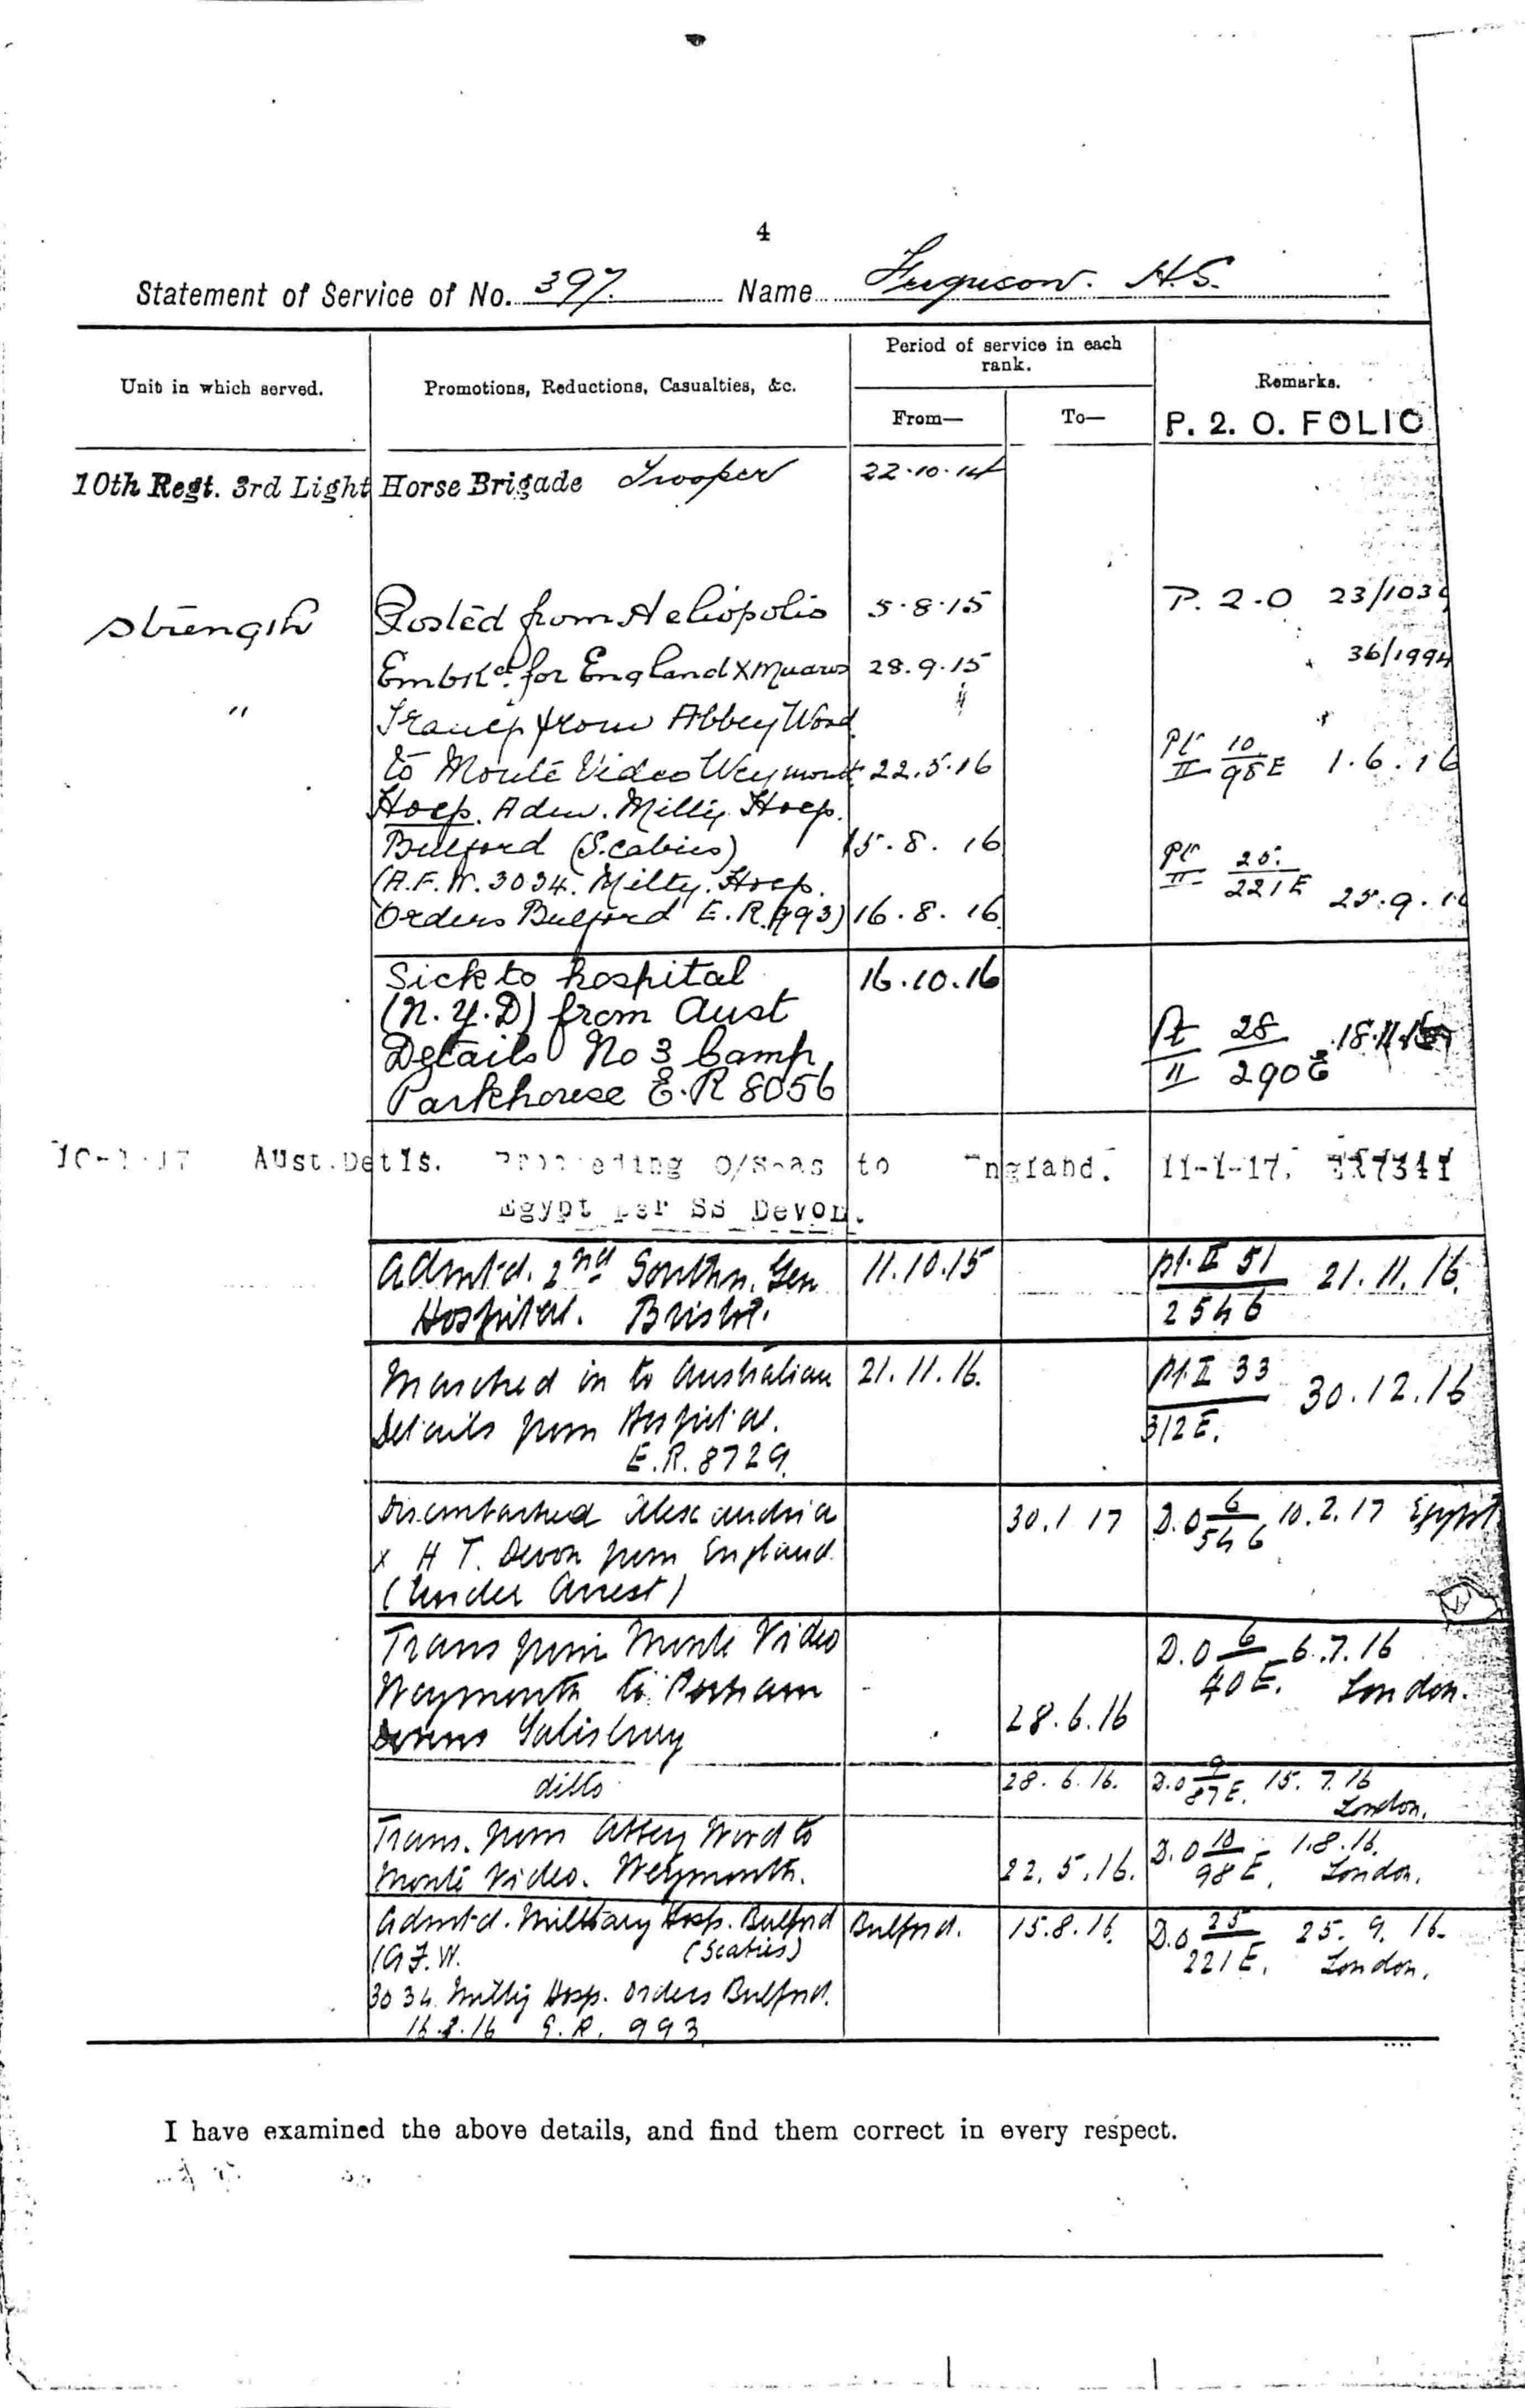 4
Statement of Service of No. 397. Name Ferguson. H.S.
Unit in which served.
Promotions, Reductions, Casualties, &c.
Period of service in each
rank.
From—
To—
Remarks.
P. 2. O. FOLIO
10th Regt. 3rd Light Horse Brigade Trooper 22.10.14
Strength Posted from Heliopolis 5.8.15 P. 2.O 23/103
Embkd. for England X 28.9.15 36/1994
" Transf from Abbey Wood
to Monte Video Weymouth 22.5.16 Pt II 10/98E 1.6.16
Hosp. Adm. Milty Hosp.
Bulford (Scabies) 15.8.16 Pt II 25/221E 25.9.16
(A.F.W. 3034. Milty. Hosp.
Orders Bulford E.R. 993) 16.8.16
Sick to hospital 16.10.16
(N.Y.D) from Aust
Details No 3 Camp Pt II 28/290E 18.11.16
Parkhouse E.R 8056
10-1-17 Aust.Detls. Proceeding O/Seas to England. 11-1-17.
Egypt per SS Devon.
Admtd. 2nd Southn. Gen 11.10.15 pt. II 51/2546 21.11.16.
Hospital. Bristol.
Marched in to Australian 21.11.16. pt. II 33/312E. 30.12.16
Details from Hospital.
E.R. 8729.
Disembarked Alexandria 30.1 17 D.O 6/546 10.2.17 Egypt
x H T. Devon from England.
(Under Arrest)
Trans from Monte Video D.O 6/40E. 6.7.16
Weymouth to Perham London.
Downs Salisbury 28.6.16
ditto 28.6.16. D.O 9/87E. 15.7.16
London.
Trans. from Abbey Wood to D.O 10/98E. 1.8.16.
Monte Video. Weymouth. 22.5.16. London.
Admtd. Military Hosp. Bulford Bulford. 15.8.16. D.O 25/221E. 25.9.16.
(A F.W. (Scabies) London.
3034 Milty Hosp. Orders Bulford.
16.8.16 E.R. 993
I have examined the above details, and find them correct in every respect.